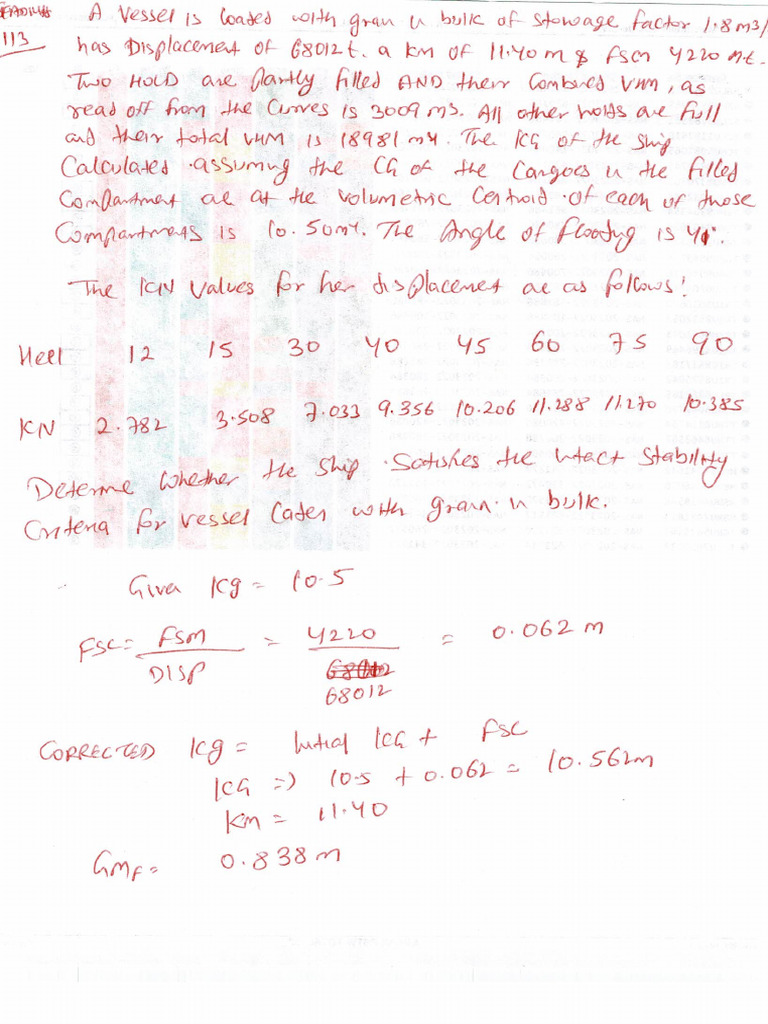 113
A Vessel is loaded with gran in bulk of stowage factor 1.8 m3/
has Displacement of 68012t. a km of 11.40 m & FSM 4220 m.t.
Two HOLD are partly filled AND their Combined VHM, as
read off from the Curves is 3009 m3. All other holds are full
and their total VHM is 18981 m4. The KG of the ship
Calculated assuming the CG of the Cargoes in the filled
Compartment are at the volumetric Centroid of each of those
Compartments is 10.50 m4. The Angle of flooding is 41°.
The KN values for her displacement are as follows!
Heel 12 15 30 40 45 60 75 90
KN 2.782 3.508 7.033 9.356 10.206 11.288 11.270 10.385
Determine whether the ship Satisfies the intact Stability
Criteria for vessel Laden with gran in bulk.
Given Kg = 10.5
FSC = FSM / DISP = 4220 / 68012 = 0.062 m
CORRECTED Kg = Initial KG + FSC
KG => 10.5 + 0.062 = 10.562m
Km = 11.40
GMF = 0.838 m